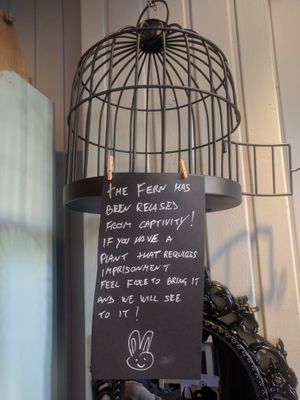 THE FERN HAS
BEEN RELASED
FROM CAPTIVITY!
IF YOU HAVE A
PLANT THAT REQUIRES
IMPRISONMENT
FEEL FREE TO BRING IT
AND WE WILL SEE
TO IT!